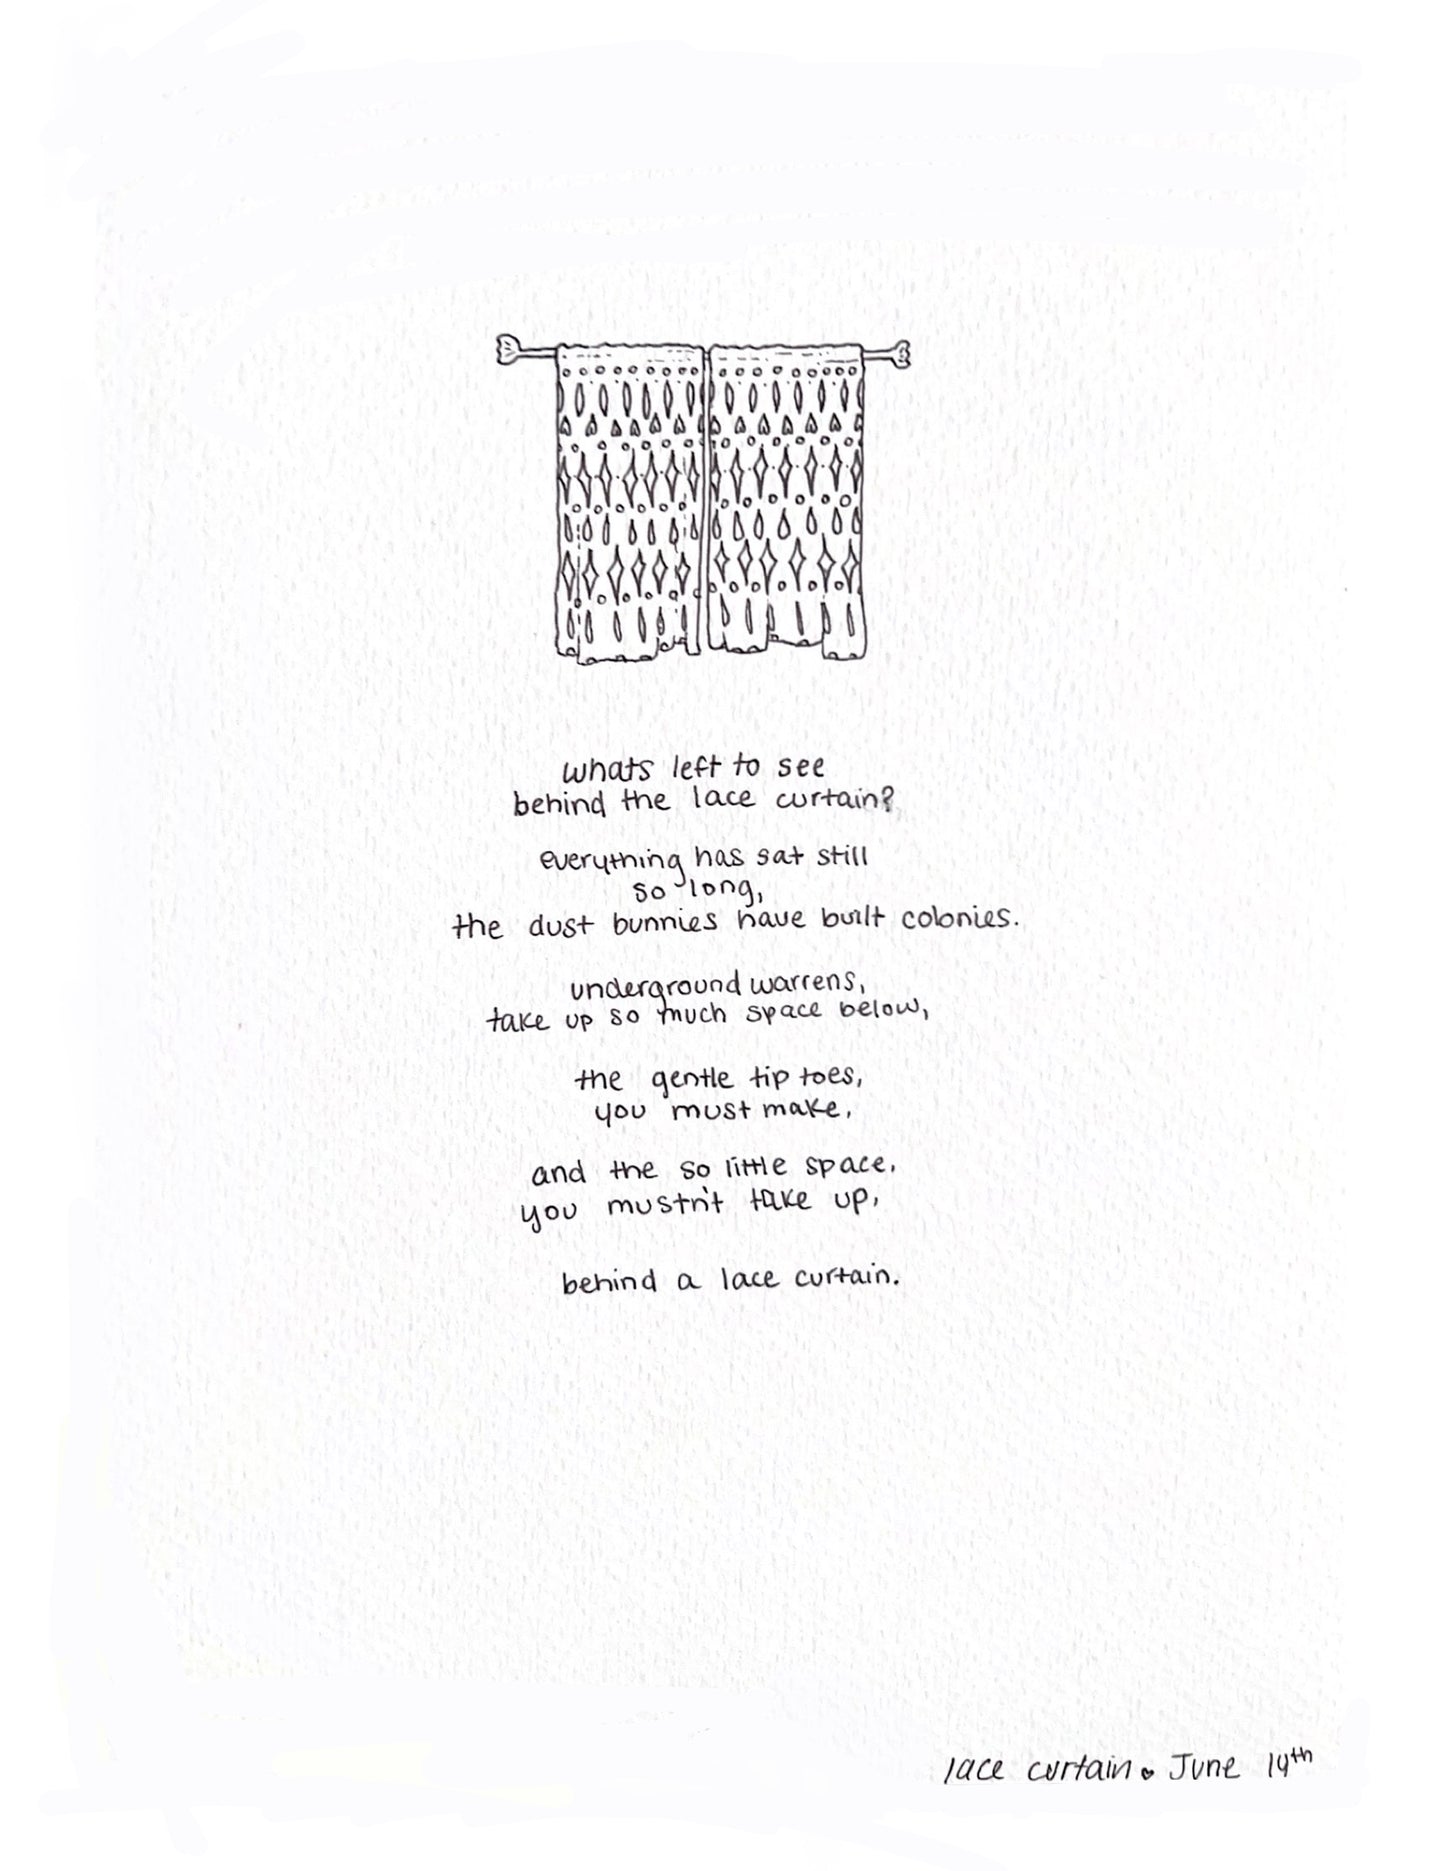 whats left to see
behind the lace curtain?
everything has sat still
so long,
the dust bunnies have built colonies.
underground warrens,
take up so much space below,
the gentle tip toes,
you must make,
and the so little space,
you mustn't take up,
behind a lace curtain.
lace curtain. June 14th